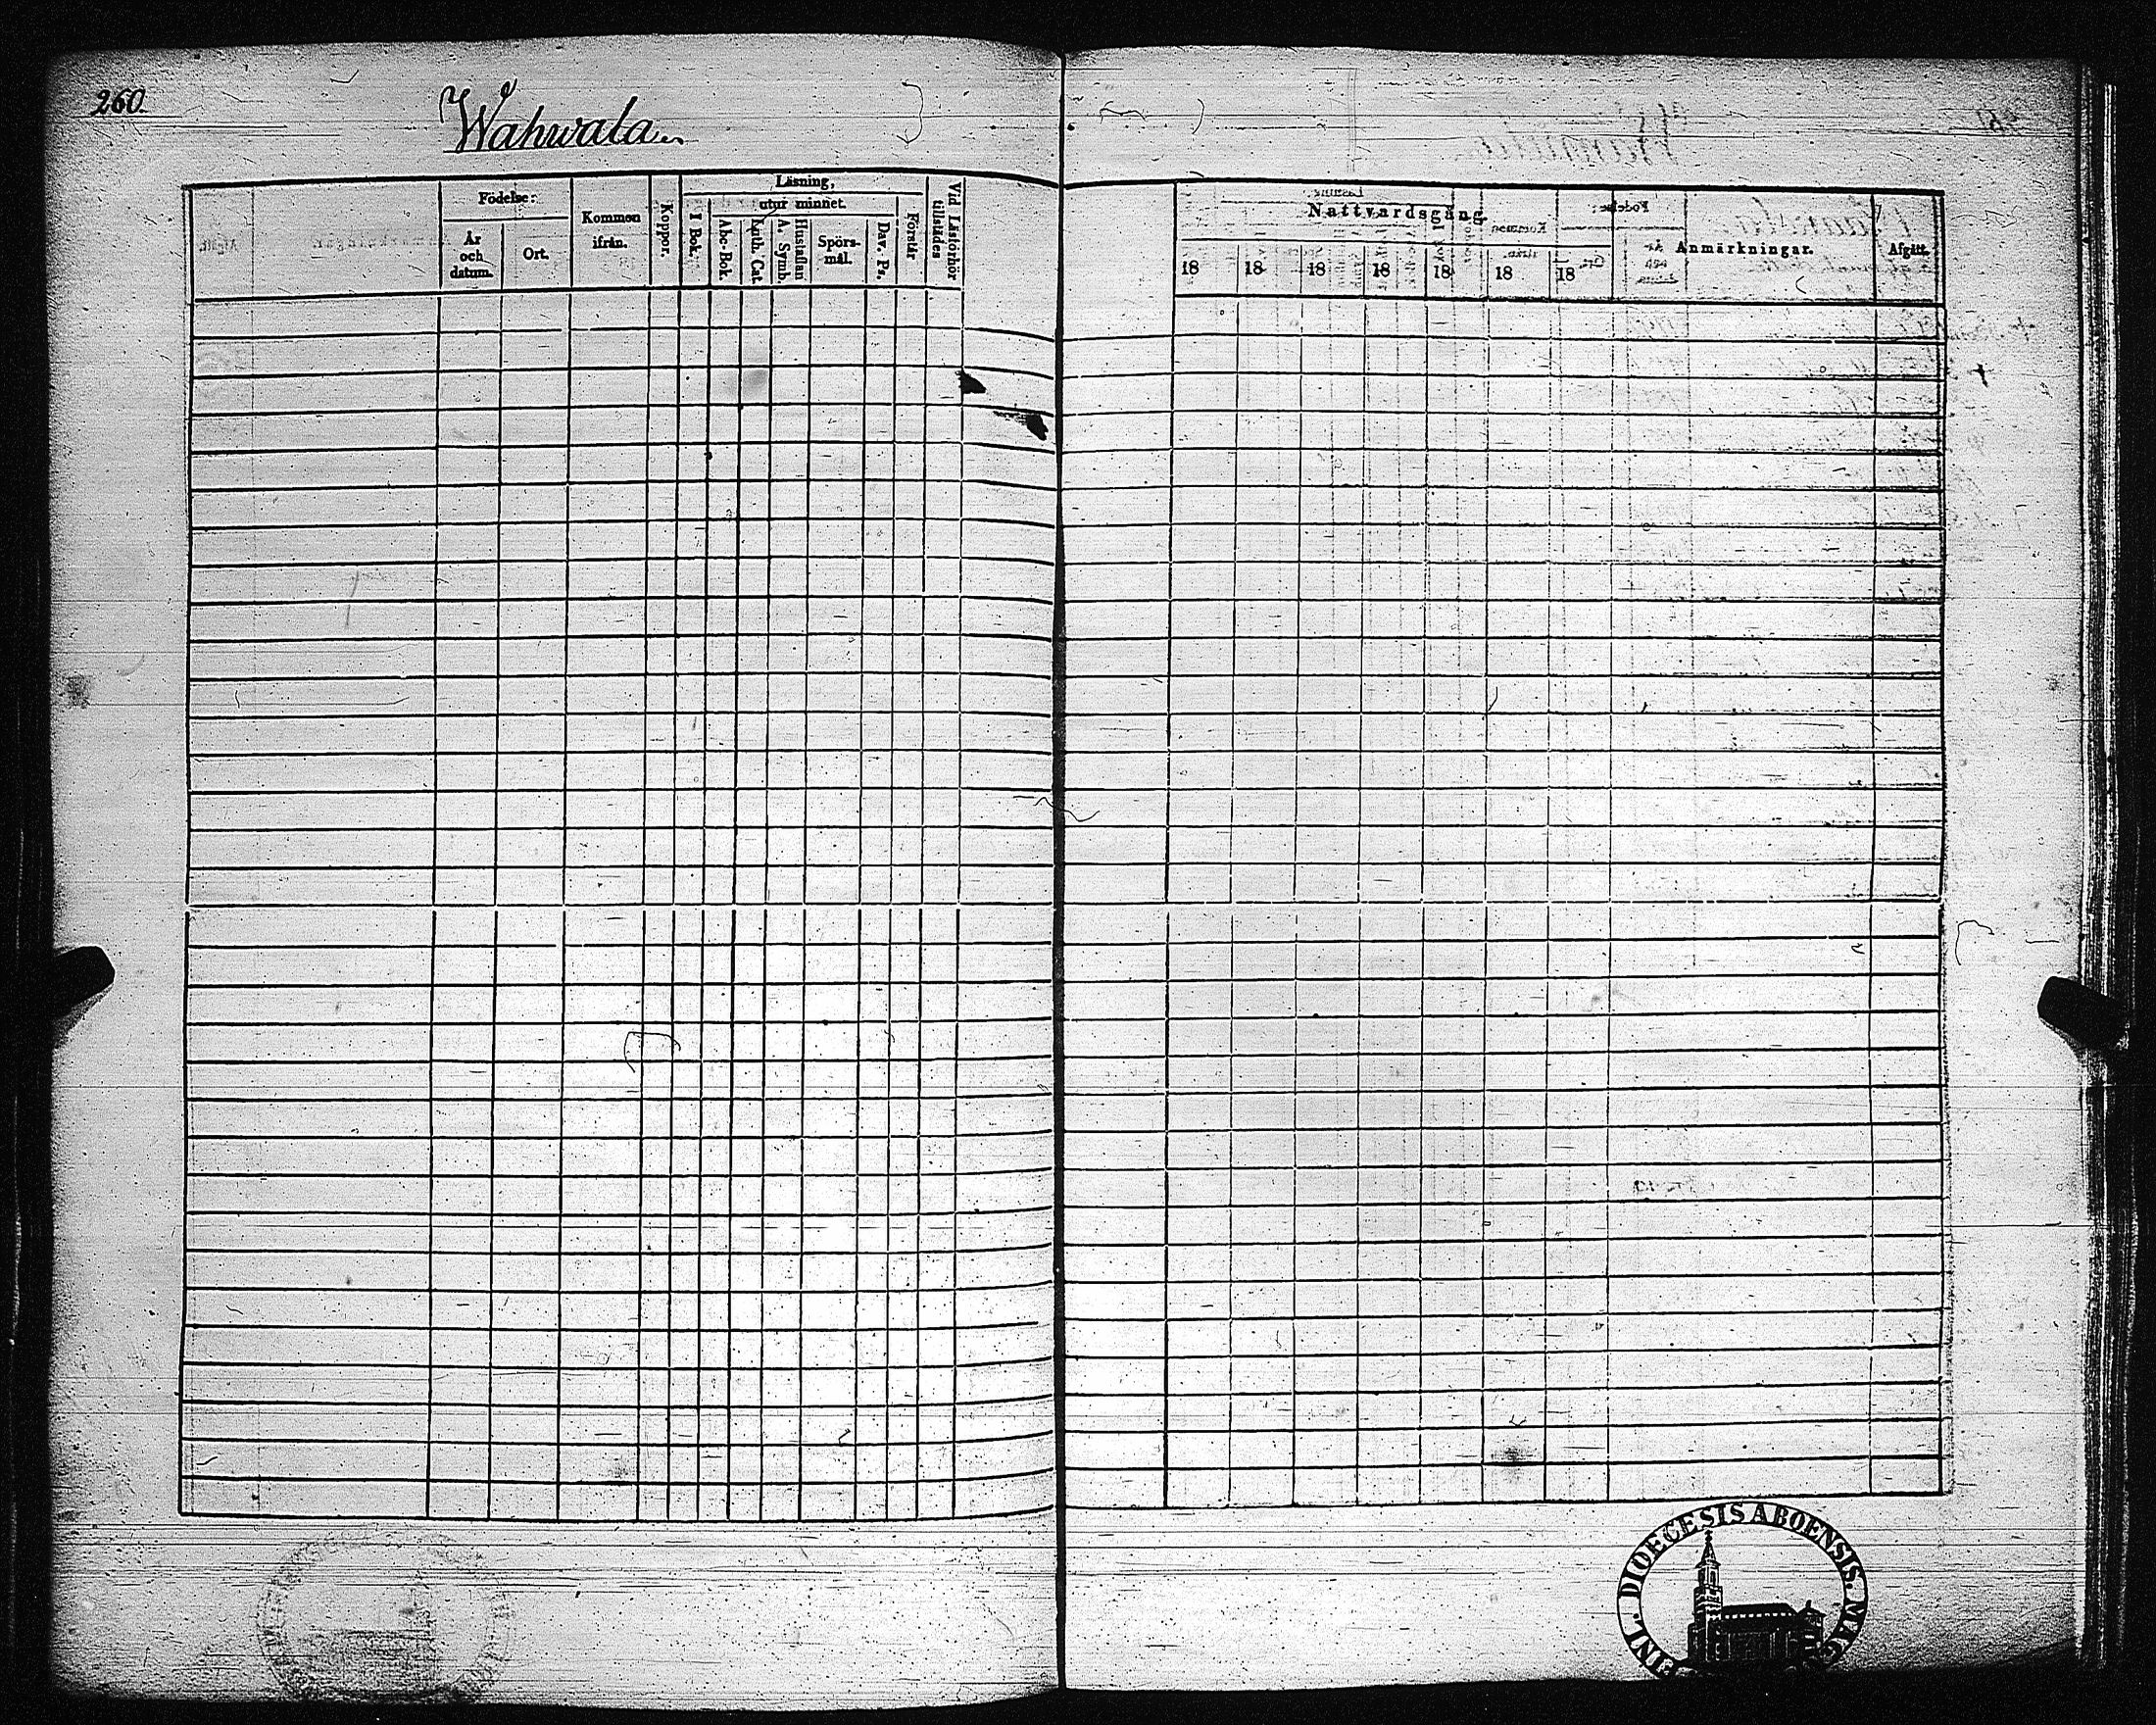 260.
Wahwala
Födelse:
År och datum.
Ort.
Kommen ifrån.
Koppor.
Läsning,
utur minnet.
I Bok.
Abc-Bok.
Luth. Cat.
A. Symb.
Hustaflan
Spörsmål.
Dav. Ps.
Förstår
Vid Läsförhör tillstädes
Nattvardsgång.
18 18 18 18 18 18 18
Anmärkningar.
Afgått.
FINL. DIOECESIS ABOENSIS. MAG